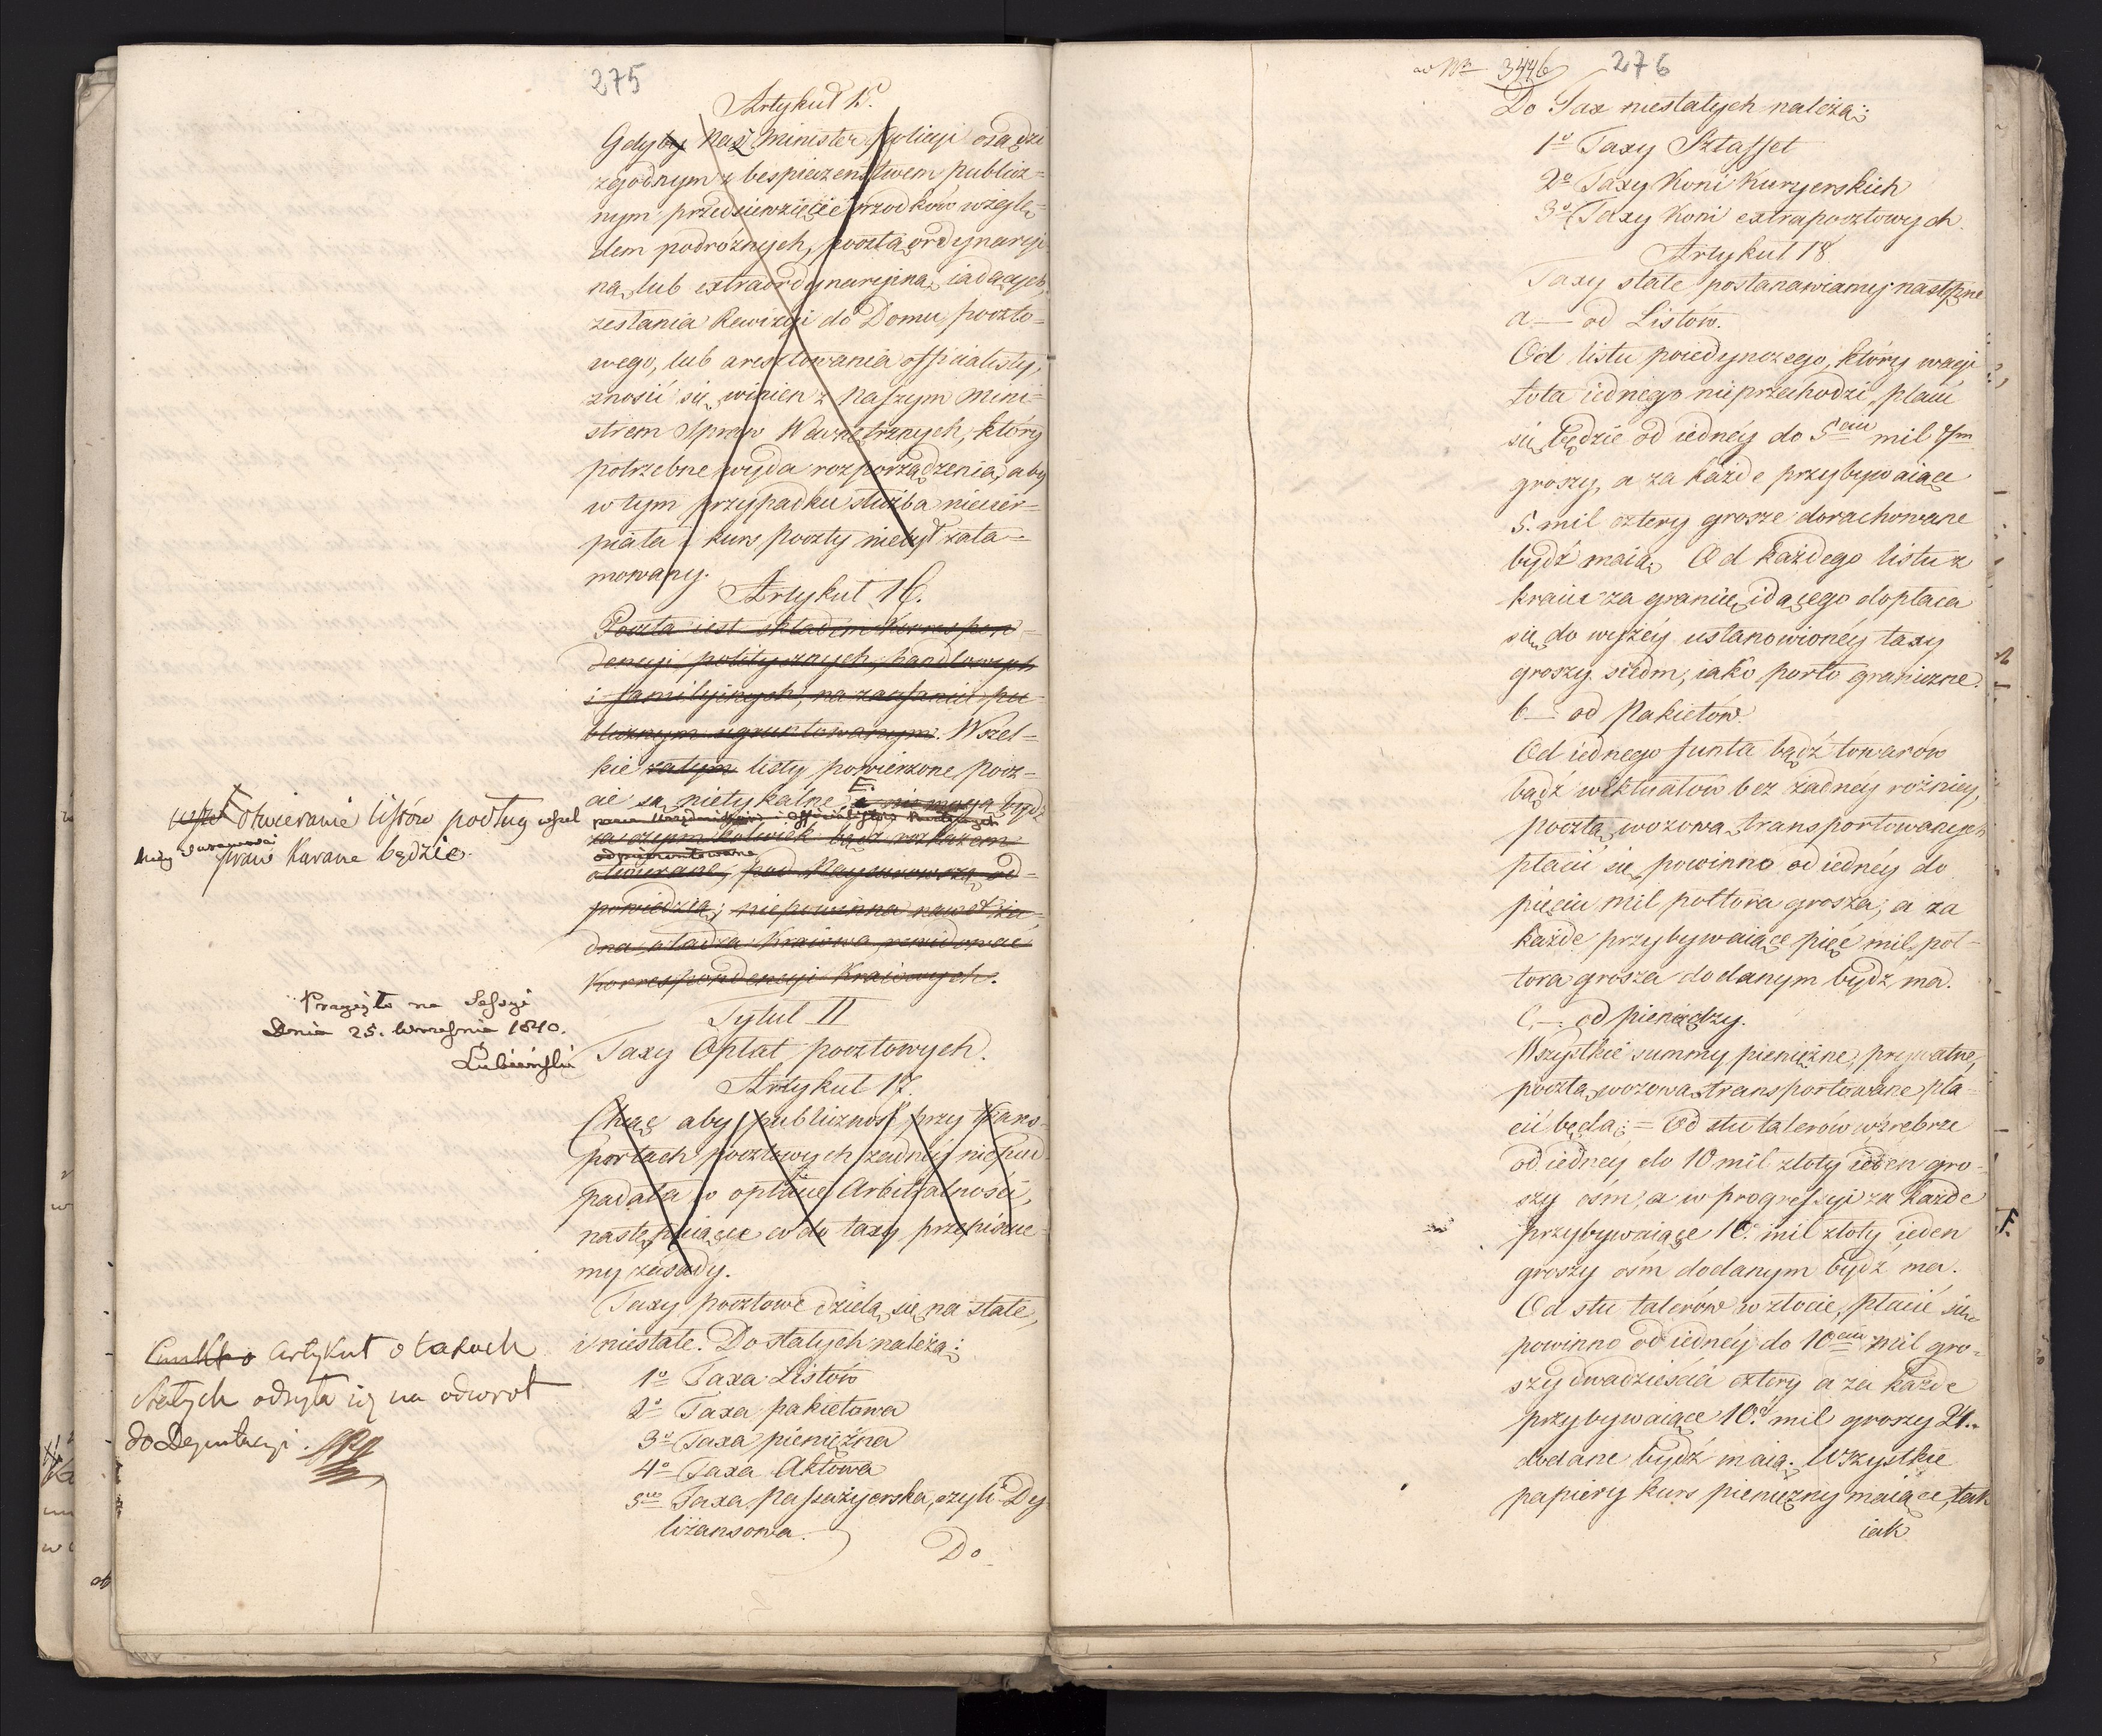 275
Artykuł 15.
Gdyby Nasz Minister Policyi osądzi
zgodnym z bespieczeństwem publicz=
nym przedsiewzięcie środków wzglę=
dem podróżnych, pocztą ordynaryj
ną lub extraordynaryiną iadących,
zesłania Rewizyi do Domu poczto=
wego, lub aresztowania officialisty,
znosić się winien z Naszym Mini=
strem Spraw Wewnętrznych, który
potrzebne wyda rozporządzenia, aby
w tym przypadku służba niecier=
piała i kurs poczty niebył zata=
mowany.
Artykuł 16.
Poczta iest składem Korrespon=
dencyi politycznych, handlowych
i familyinych, na zaufaniu pu=
blicznym ugruntowanym. Wszel=
kie zatym listy powierzone pocz=
cie są nietykalne E. a nie mogą bydź
przez Urzędników i Officialistów
za czyim kolwiek bądź rozkazem
odpieczętowane
otwierane, pod Naysurowszą od=
powiedzią; niepowinna nawet ża=
dna władza Kraiowa rewidować
Korrespondencyi Kraiowych.
E otwieranie listów podług wszel
kiey surowości
praw karane będzie.
Przyięto na Sessyi
Dnia 25. Września 1810.
Łubieński
Tytuł II
Taxy Opłat pocztowych.
Artykuł 17.
Chcąc aby publiczność przy trans=
portach pocztowych żadnéy niepod=
padała w opłacie Arbitralności,
następuiące co do taxy przepisuie=
my zasady.
Taxy pocztowe dzielą się na stałe,
i niestałe. Do stałych należą:
1º Taxa Listów
2º Taxa pakietowa
3º Taxa pieniężna
4º Taxa Aktowa
5º Taxa Passażyerska, czyli Dy
liżansowa.
Do
Artykuł o taxach
stałych odsyła się na odwrót
do Deputacyi.
ad Nº 3446
276
Do Tax niestałych należą:
1º Taxy Sztaffet
2º Taxy Koni Kuryerskich
3º Taxy Koni extrapocztowych.
Artykuł 18
Taxy stałe postanawiamy następne
a.— od Listów.
Od listu poiedynczego, który wagi
łóta iednego nieprzechodzi, płacić
się będzie od iednéy do 5ciu mil 7m
groszy, a za każde przybywaiące
5. mil cztery grosze dorachowane
bydź maią. Od każdego listu z
kraiu za granicę idącego dopłaca
się do wyżéy ustanowionéy taxy
groszy siedm, iako porto graniczne.
b— od Pakietów.
Od iednego funta bądź towarów
bądź wiktuałów bez żadnéy różnicy,
pocztą wozową transportowanych
płacić się powinno od iednéy do
pięciu mil półtora grosza; a za
każde przybywaiące pięć mil, pół=
tora grosza dodanym bydz ma.
C,— od pieniędzy.
Wszystkie summy pieniężne, prywatne,
pocztą wozową transportowane pła=
cić będą: = Od stu talerów w śrebrze
od iednéy do 10 mil złoty ieden gro=
szy ośm, a w progressyi za każde
przybywaiące 10. mil złoty ieden
groszy ośm dodanym bydź ma.
Od stu talerów w złocie, płacić się
powinno od iednéy do 10ciu mil gro=
szy dwadzieścia cztery a za każde
przybywaiące 10. mil groszy 24.
dodane bydź maią. Wszystkie
papiery kurs pieniężny maiące, tak
iak
F.